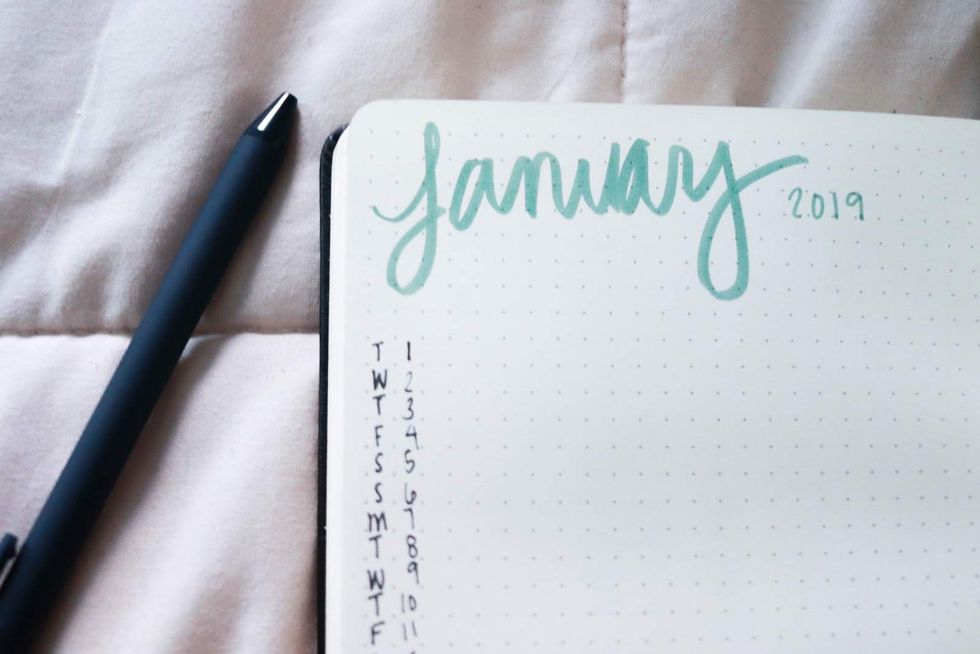 January 2019
T 1
W 2
T 3
F 4
S 5
S 6
M 7
T 8
W 9
T 10
F 11